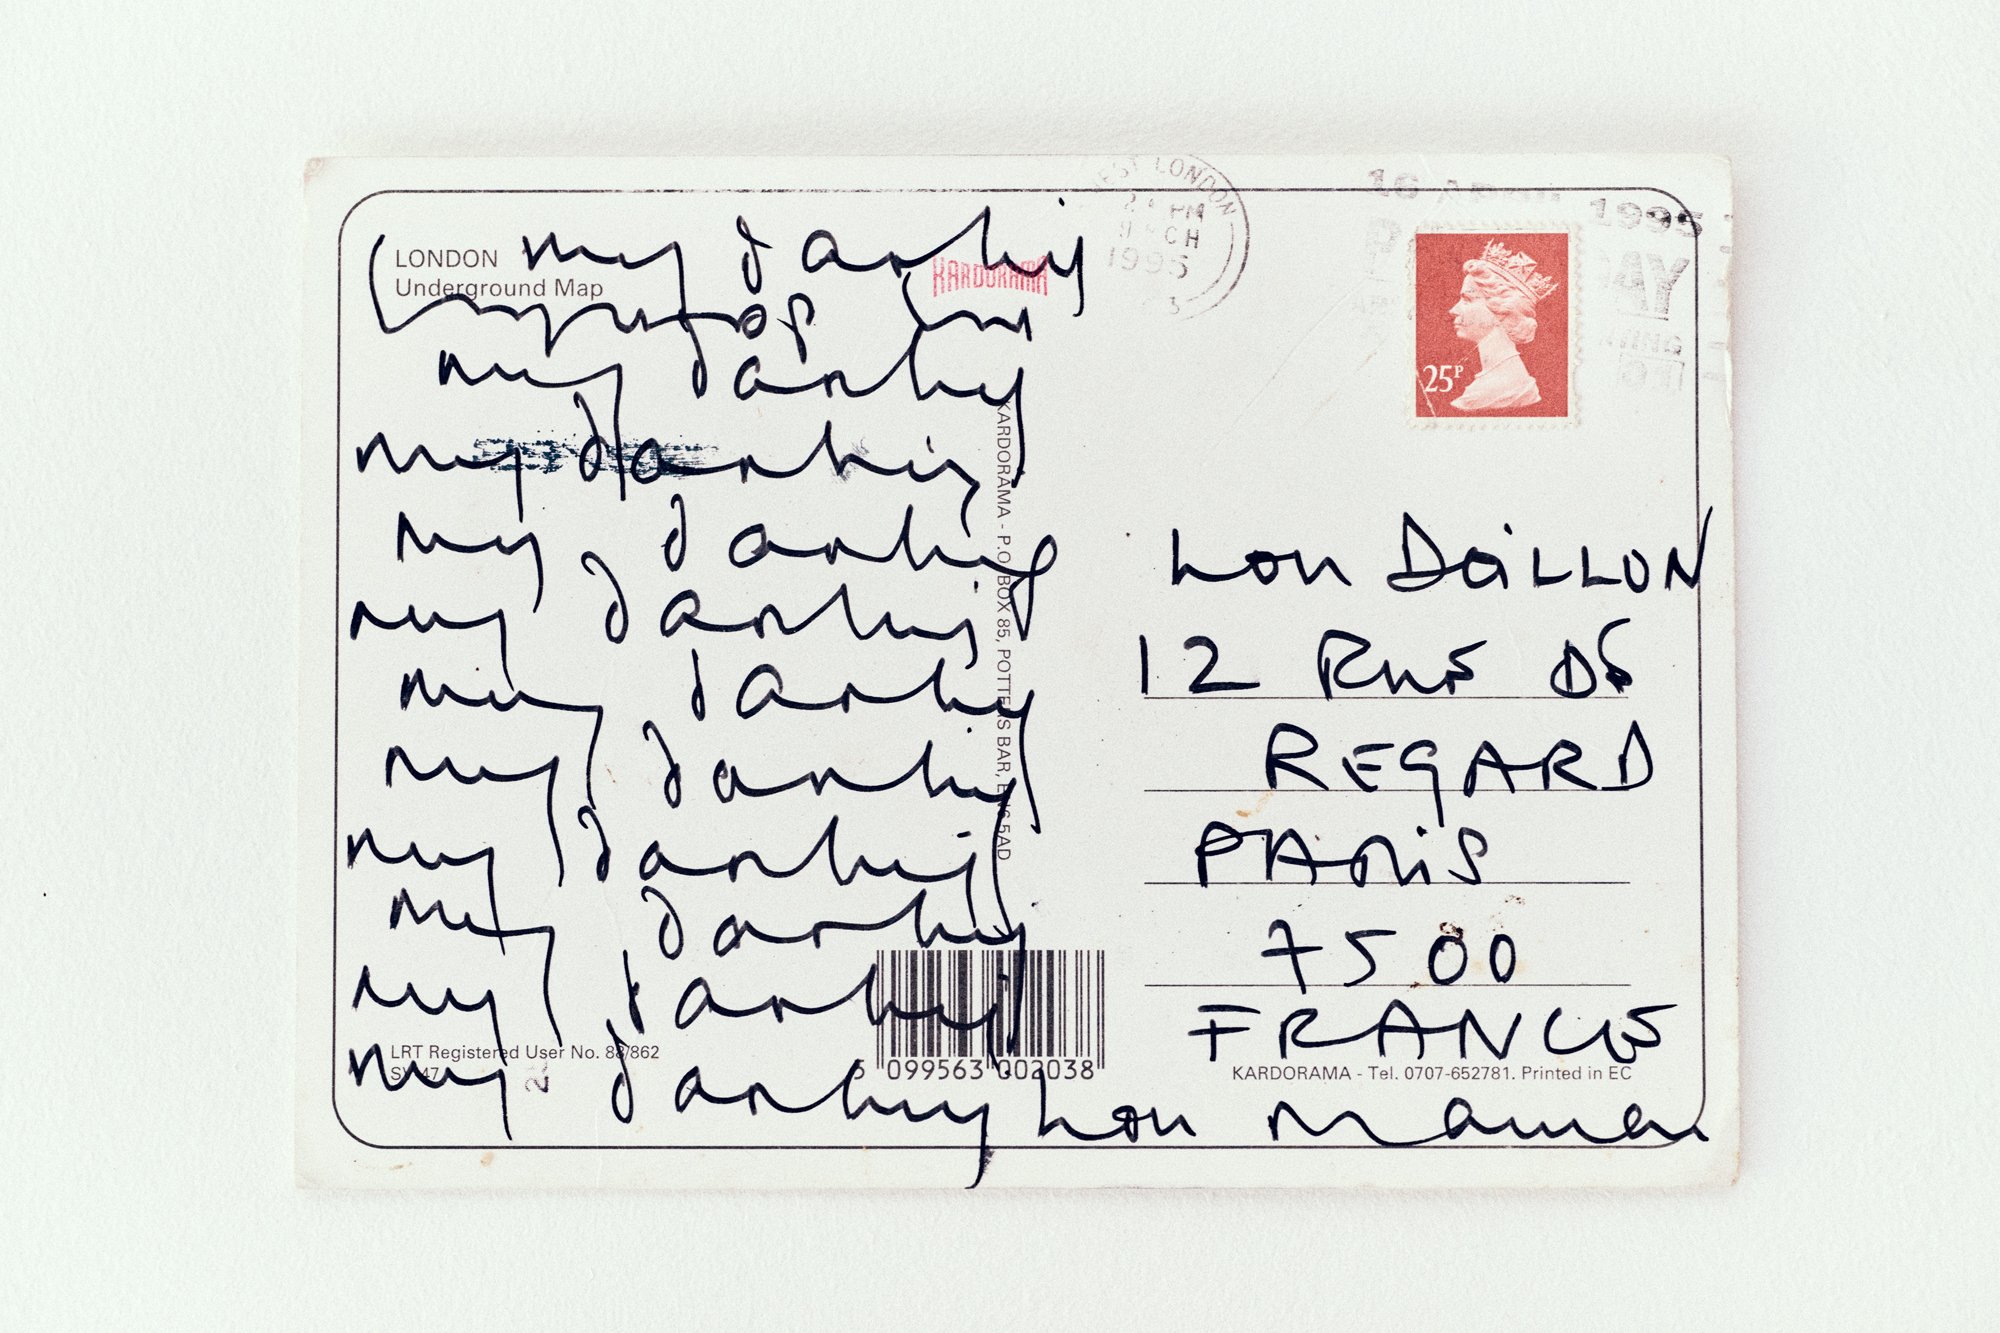 LONDON
Underground Map
my darling
my darling
my darling
my darling
my darling
my darling
my darling
my darling
my darling
my darling
my darling
Lou Maman
KARDORAMA
KARDORAMA - P.O. BOX 85, POTTERS BAR,
LRT Registered User No. 88/862
099563 002038
LONDON
PM
1995
1995
25P
Lou DOiLLON
12 Rue DE
REGARD
PARiS
7500
FRANCE
KARDORAMA - Tel. 0707-652781. Printed in EC